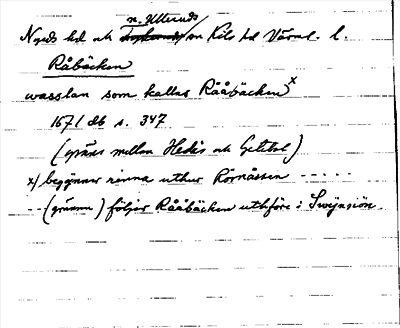 n. Ullerud s
Nyeds hd och sn Kils hd Värml. l.
Råbäcken
wasslan som kallas Rååbäcken x
1671 db s. 347
(gräns mellan Hedås och Gettbol)
x) begynner rinna uthur Rörmåssen - - - - -
- - (gränsen) följer Rååbäcken uthföre i Swijnsiön.